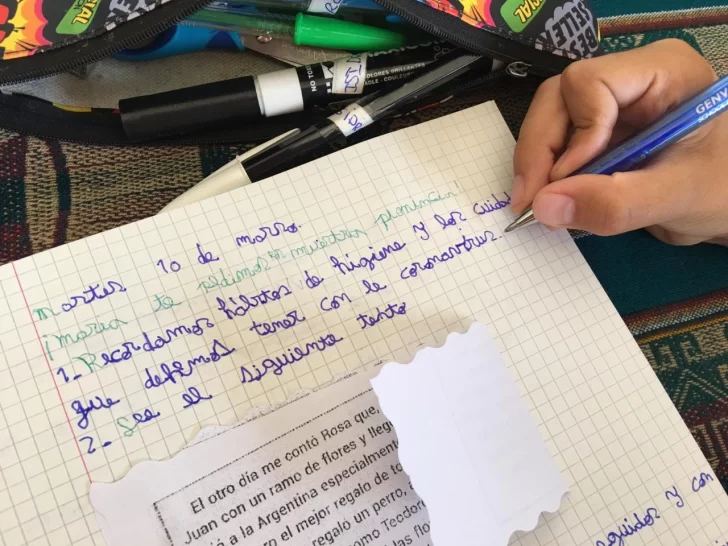 martes 10 de marzo.
¡maria te pedimos por nuestros
1- Recordamos hábitos de higiene y los cuidad
que debemos tener con le coronavirus.
2- Lee el siguiente texto
El otro día me contó Rosa que,
Juan con un ramo de flores y lleg
a la Argentina especialment
el mejor regalo de to
regaló un perro,
omo Teodor
las flo
seguidos y con
NO TO
COLORES BRILLANTES
ABLE - COULEU
GENV